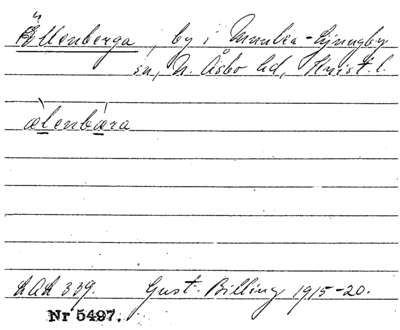 Ällenberga, by i Munka-Ljungby
sn, N. Åsbo hd, Krist. l.
ælenbæra
LAL 339. Gust. Billing 1915-20.
Nr 5497.